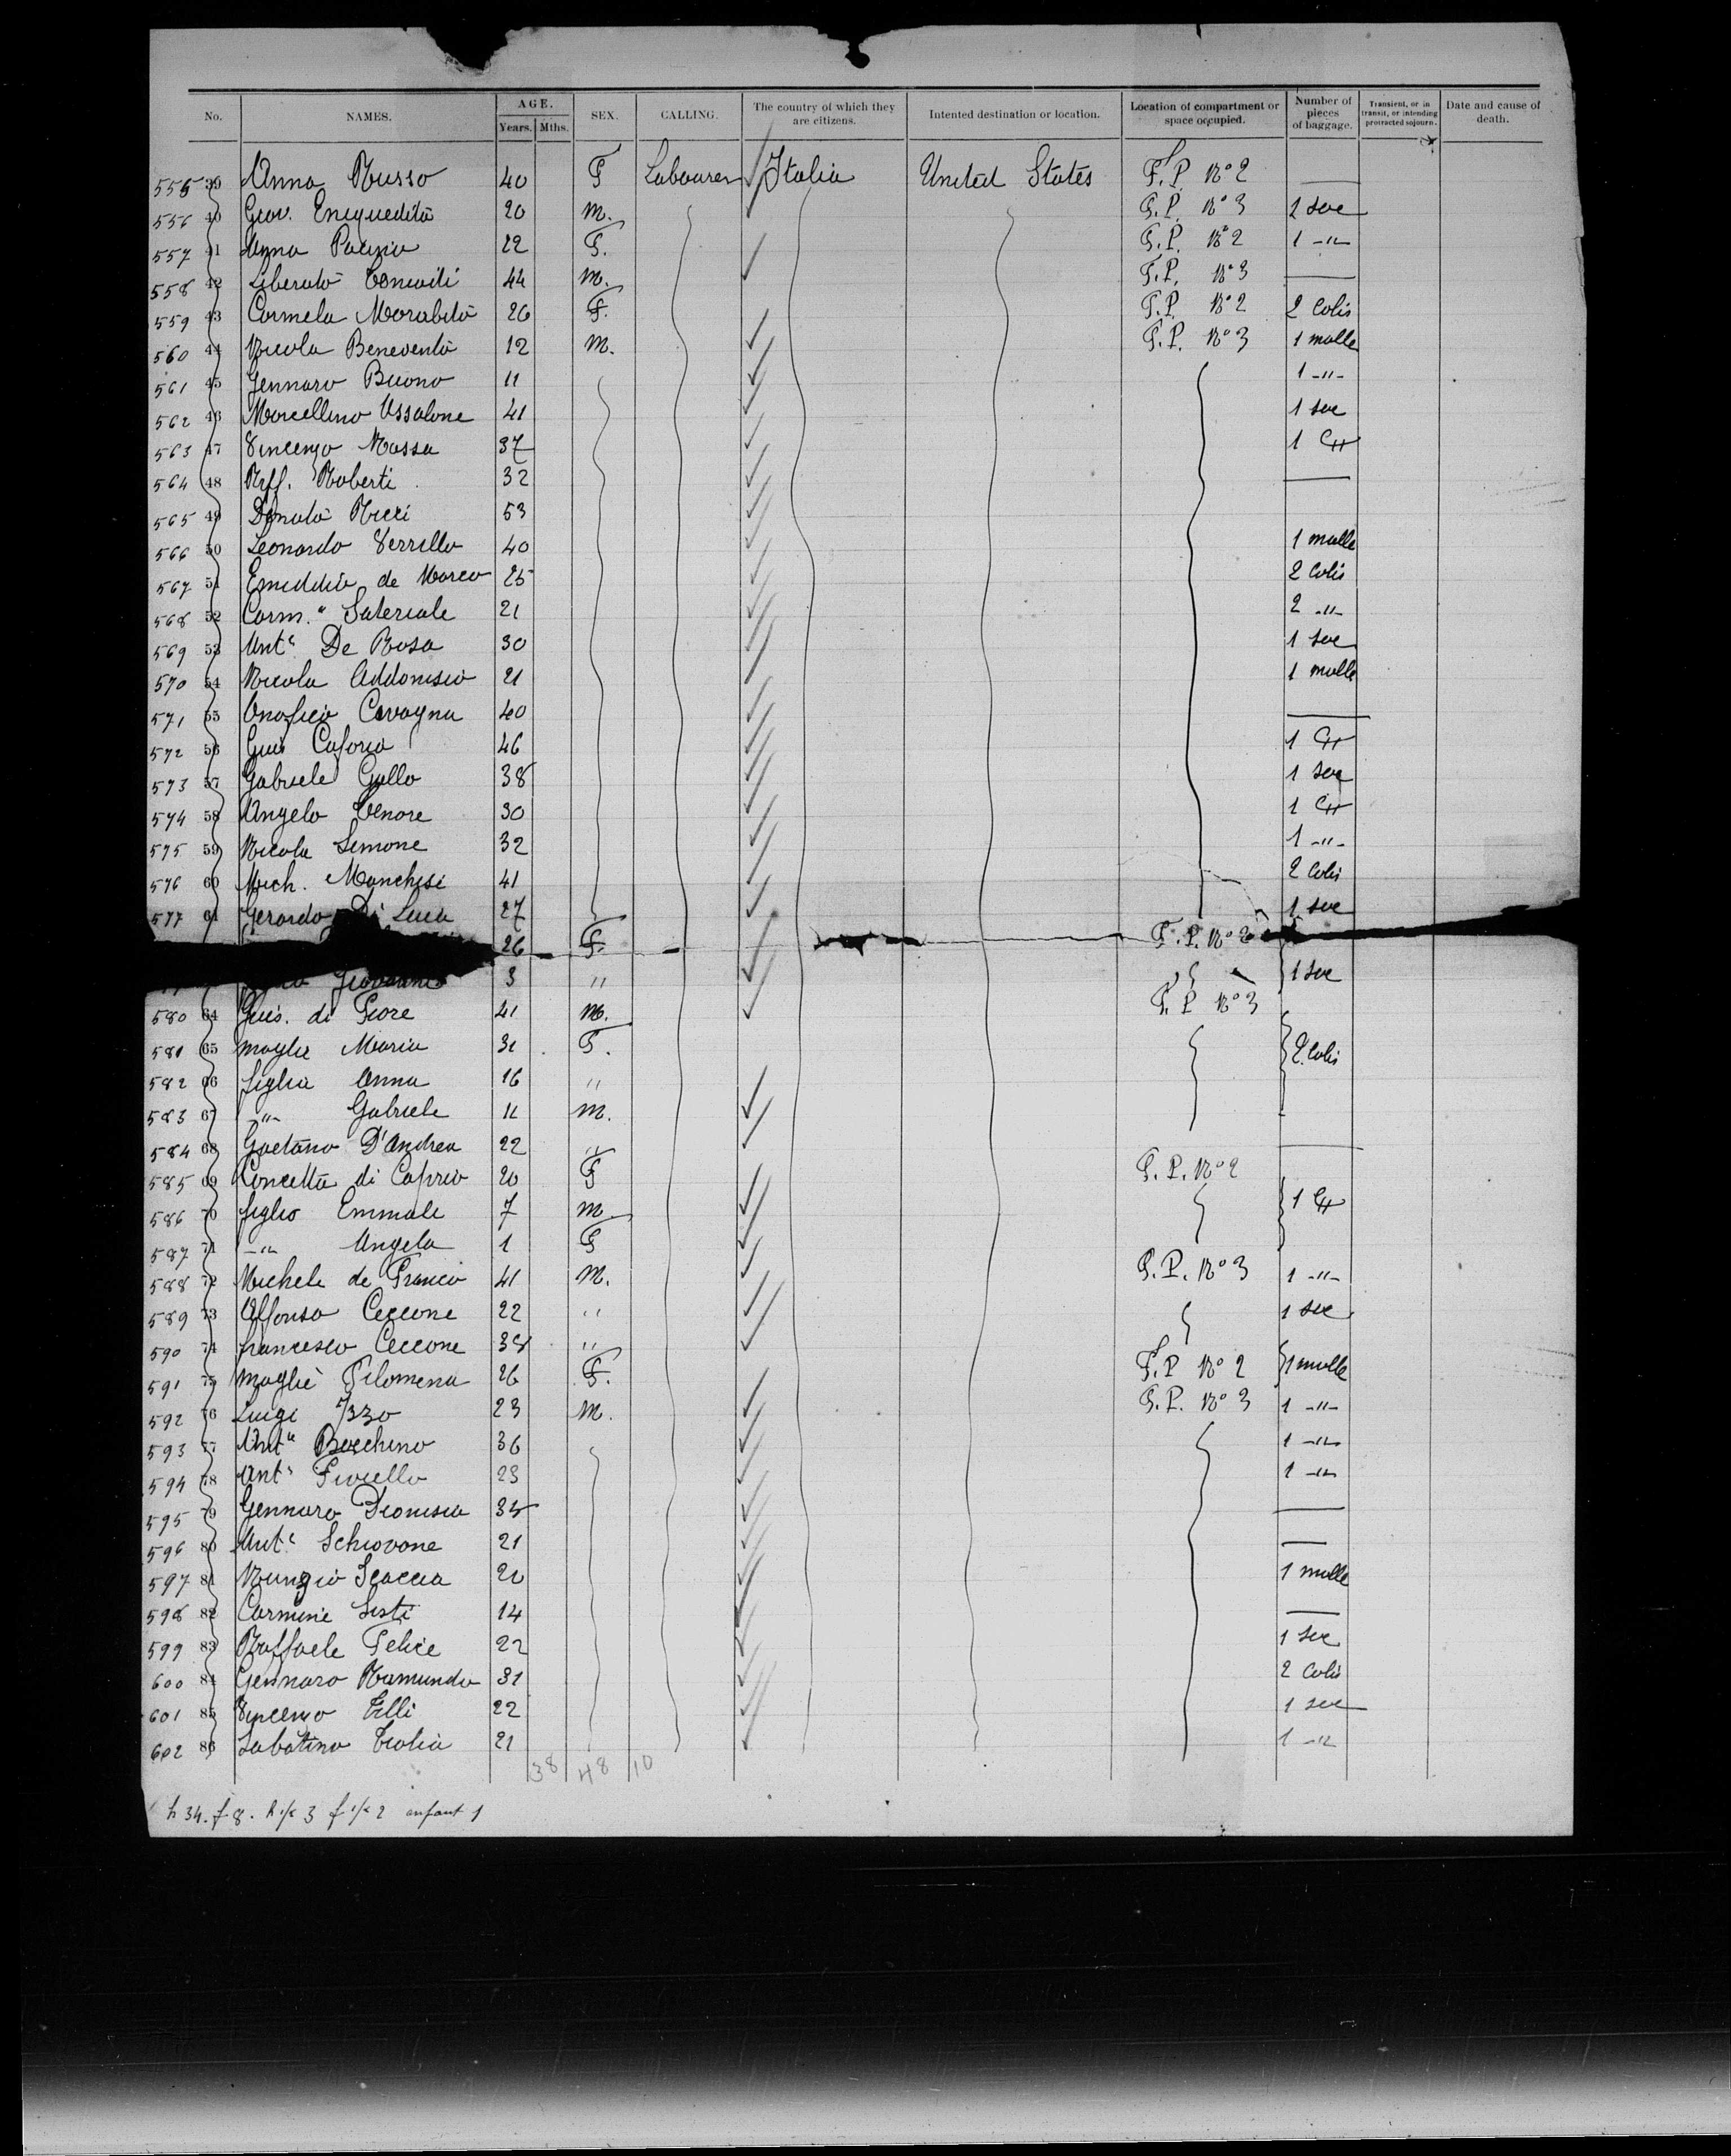 No. NAMES. AGE. Years. Mths. SEX. CALLING. The country of which they are citizens. Intented destination or location. Location of compartment or space occupied. Number of pieces of baggage. Transient, or in transit, or intending protracted sojourn. Date and cause of death.
555 39 Anna Russo 40 F Labourer Italia United States F.P. No 2 —
556 40 Giov. 20 m. F.P. No 3 2 sac
557 41 Anna 22 F. F.P. No 2 1 -"-
558 42 Liberato 44 m. F.P. No 3 —
559 43 Carmela Morabito 26 F. F.P. No 2 2 Colis
560 44 Nicola Benevento 12 M. F.P. No 3 1 malle
561 45 Gennaro Buono 11 1 -"-
562 46 Marcellino Ussalone 41 1 sac
563 47 Vincenzo Massa 37 1
564 48 Raff. Roberti 32 —
565 49 Donato Ricci 53
566 50 Leonardo Verrillo 40 1 malle
567 51 Emiddio de Marco 25 2 Colis
568 52 Carm. Sateriale 21 2 -"-
569 53 Ant° De Rosa 30 1 sac
570 54 Nicola Addonisio 21 1 malle
571 55 Onofrio Cavagna 40 —
572 56 Caforio 46 1
573 57 Gabriele Gallo 38 1 sac
574 58 Angelo Tenore 30 1
575 59 Nicola Simone 32 1 -"-
576 60 Mich. Manchisi 41 2 Colis
577 61 Gerardo Di Luca 27 1 sac
26 F. F.P. No 2
Giovanna 3 " 1 sac
580 64 Gius. di Fiore 41 m. F.P. No 3
581 65 moglie Maria 31 F. 2 Colis
582 66 figlia Anna 16 "
583 67 -"- Gabriele 11 m.
584 68 Gaetano D'Andrea 22 " —
585 69 Concetta di Caprio 20 F F.P. No 2
586 70 figlio Emmale 7 m 1
587 71 -"- Angela 1 F
588 72 Michele de Franco 41 M. F.P. No 3 1 -"-
589 73 Alfonso Ceccone 22 " 1 sac
590 74 Francesco Ceccone 38 "
591 75 moglie Filomena 26 F. F.P. No 2 1 malle
592 76 Luigi Izzo 23 m. F.P. No 3 1 -"-
593 77 Ant° Bocchino 36 1 -"-
594 78 Ant° Fiorello 23 1 -"-
595 79 Gennaro Dionisio 35 —
596 80 Ant° Schiavone 21 —
597 81 Nunzio Scaccia 20 1 malle
598 82 Carmine Sisti 14 —
599 83 Raffaele Felice 22 1 sac
600 84 Gennaro Ramundo 31 2 Colis
601 85 Vincenzo Tilli 22 1 sac
602 86 Sabatino 21 1 -"-
38 48 10
h 34. f 8. h 1/2 3 f 1/2 2 enfant 1